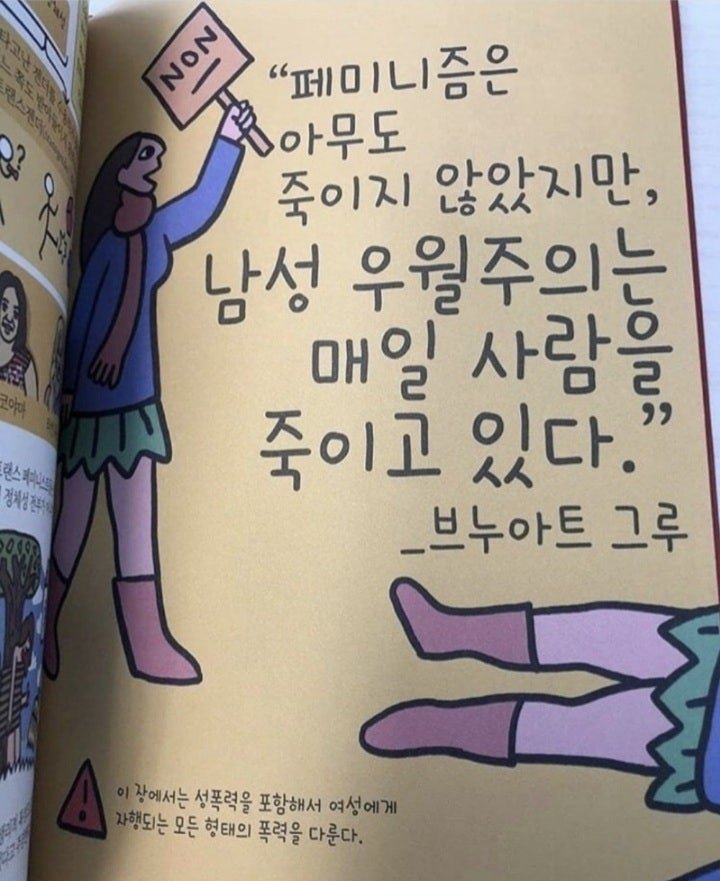 NON!
“페미니즘은
아무도
죽이지 않았지만,
남성 우월주의는
매일 사람을
죽이고 있다.”
_브누아트 그루
이 장에서는 성폭력을 포함해서 여성에게
자행되는 모든 형태의 폭력을 다룬다.
!
타고난 젠더를
?
코야마
정체성 전부가